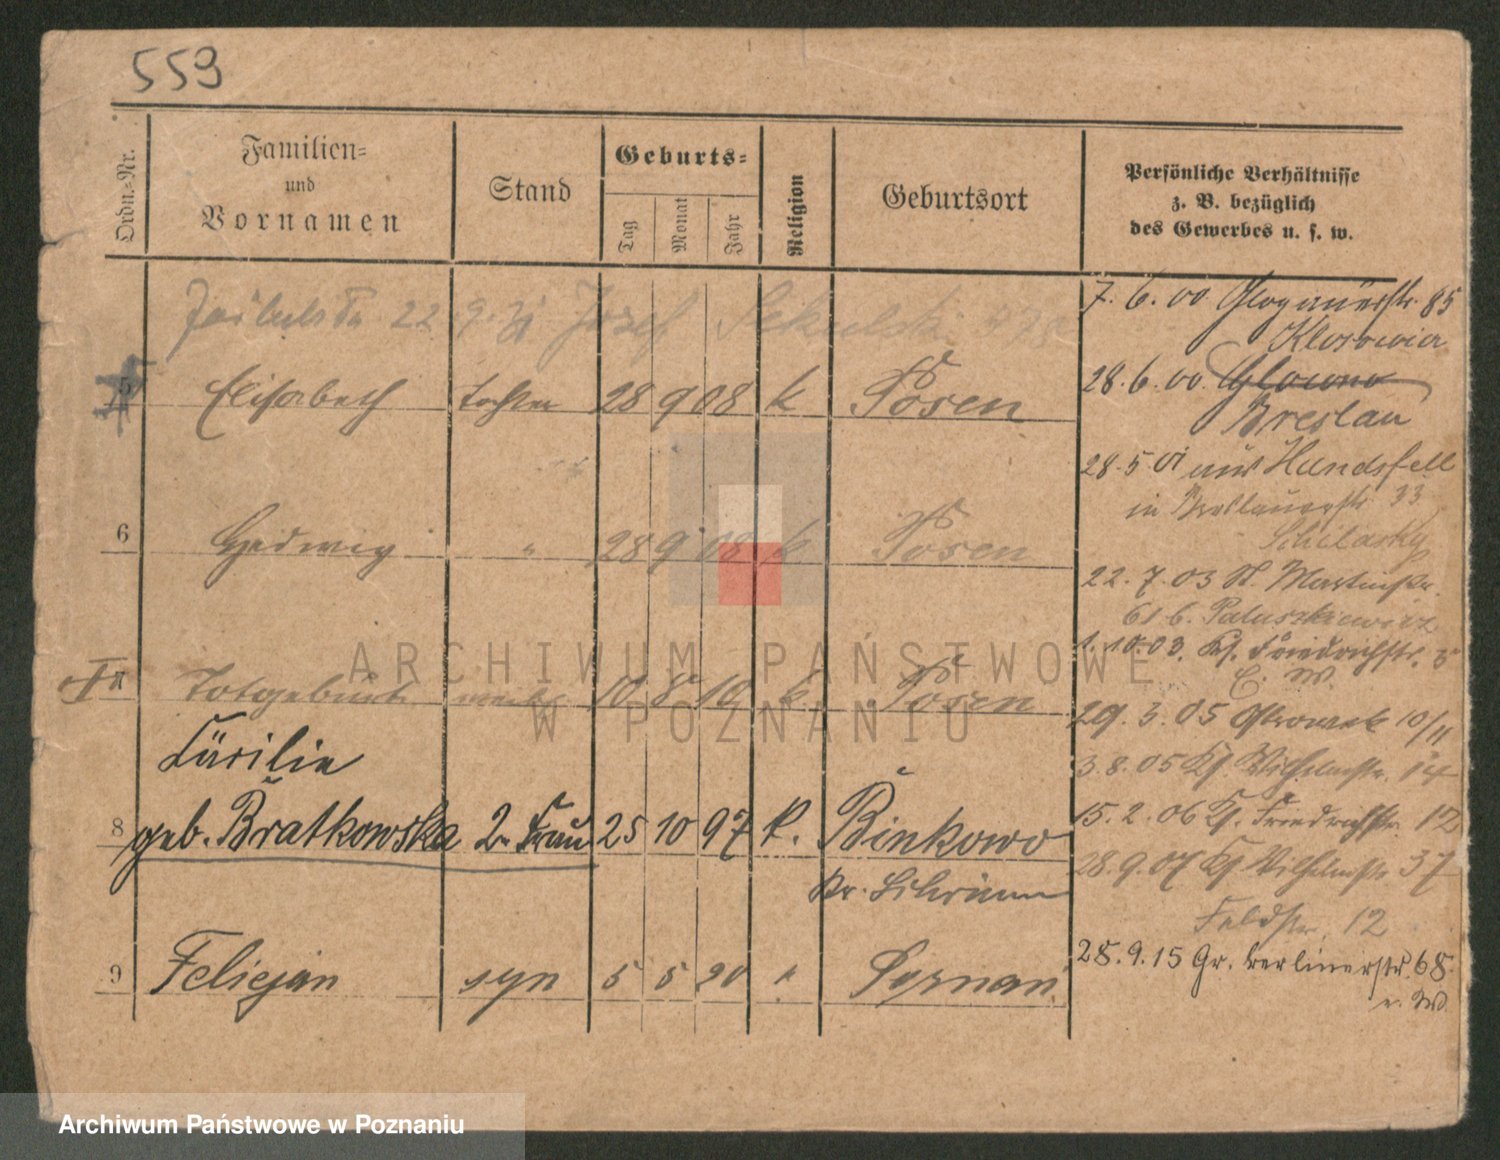 559
Ordn.-Nr.
Familien-
und
Vornamen
Stand
Geburts-
Tag
Monat
Jahr
Religion
Geburtsort
Persönliche Verhältnisse
z. B. bezüglich
des Gewerbes u. s. w.
22 9 Józef
7. 6. 00 Glogauerstr. 85
28. 6. 00 Glowno
Breslau
5 Elisabeth Tochter 28 9 08 k Posen
28. 5. 01 aus Hundsfeld
in Breslauerstr. 33
6 Hedwig " 28 9 08 k Posen
22. 7. 03 St. Martinstr.
61 b. Paluszkiewicz
1. 10. 03. Kf. Friedrichstr. 5
C. W.
Totgeburt weibl. 10 8 10 k. Posen
29. 3. 05 Ostrowek 10/11
3. 8. 05 Kf. Wilhelmstr. 14
Cäcilie
8 geb. Bratkowska 2. Frau 25 10 97 k. Binkowo
Kr. Schrimm
15. 2. 06 Kf. Friedrichstr. 12
28. 9. 07 Kf. Wilhelmstr. 37
Feldstr. 12
9 Felicjan syn 5 5 20 " Poznań
28. 9. 15 Gr. Berlinerstr. 68.
e. W.
ARCHIWUM PAŃSTWOWE
W POZNANIU
Archiwum Państwowe w Poznaniu